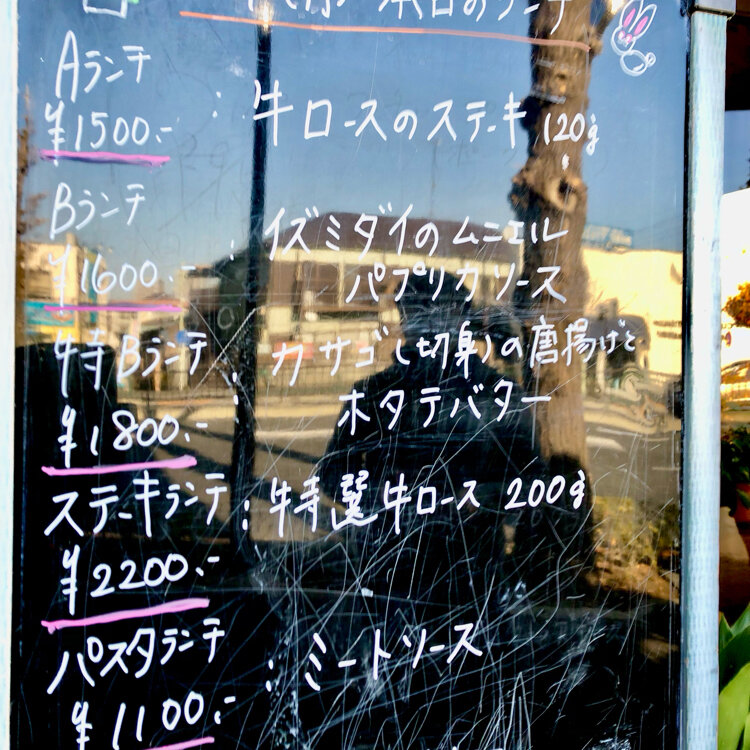 本日のランチ
Aランチ
¥1500.-
: 牛ロースのステーキ 120g
Bランチ
¥1600.-
: イズミダイのムニエル
パプリカソース
特Bランチ
¥1800.-
: カサゴ(切身)の唐揚げと
ホタテバター
ステーキランチ : 特選牛ロース 200g
¥2200.-
パスタランチ
: ミートソース
¥1100.-